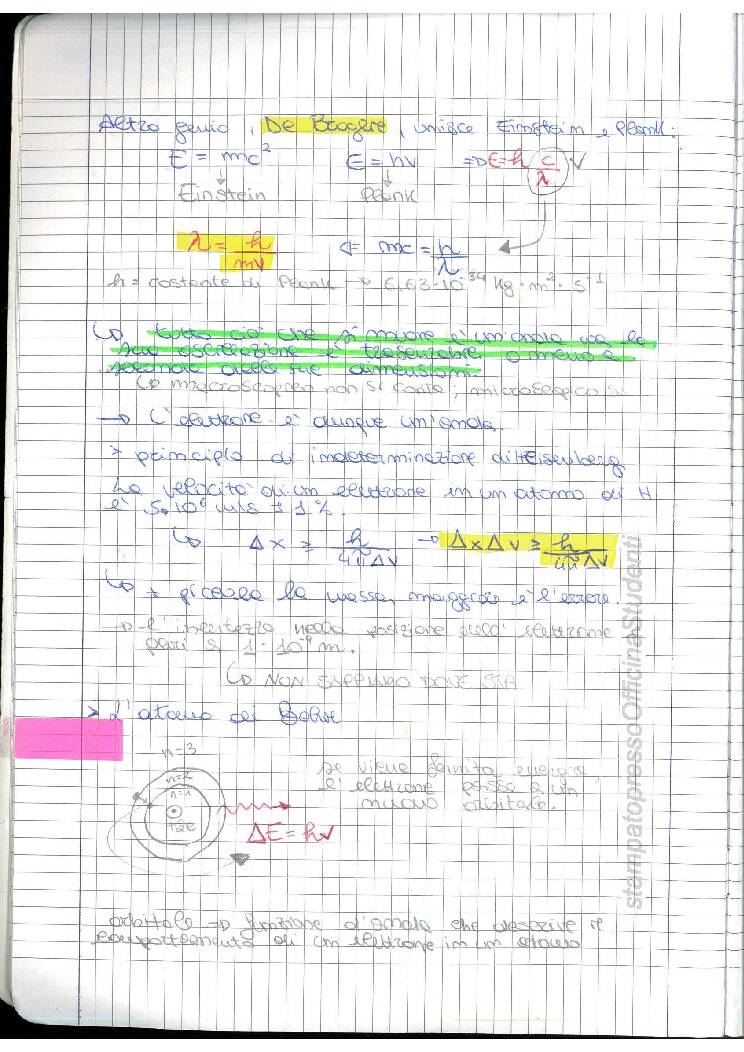 Altro genio, De Broglie, unisce Einstein e Plank:
E = mc² E = hν ⇒ E = h c/λ ✓
Einstein Plank
λ = h/mv ⇐ mc = h/λ
h = costante di Plank → 6,63·10⁻³⁴ Kg·m²·s⁻¹
↳ tutto ciò che si muove è un'onda ma la
sua oscillazione è trascurabile o meno a
seconda delle sue dimensioni.
↳ macroscopico non si conta, microscopico si
→ L'elettrone è dunque un'onda.
> principio di indeterminazione di Heisenberg
La velocità di un elettrone in un atomo di H
è 5·10⁶ m/s ± 1%.
↳ Δx ≥ h/4πΔv → ΔxΔv ≥ h/4πΔv
↳ + piccola la massa, maggiore è l'errore.
→ l'incertezza nella posizione dell'elettrone è
pari a 1·10⁻⁹ m.
↳ NON SAPPIAMO DOVE STA
> L'atomo dei Bohr
n=3
n=2
n=1
+2e
ΔE = hν
se viene fornita energia,
l'elettrone passa a un
nuovo orbitale.
orbitale ⇒ funzione d'onda che descrive il
comportamento di un elettrone in un atomo
stampatopressoOfficinaStudenti